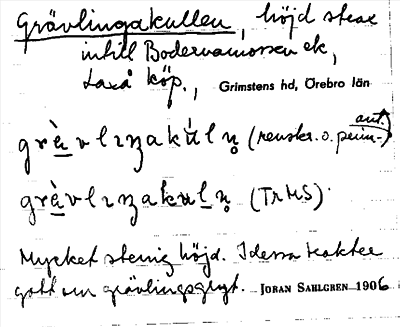 Grävlingakullen, höjd strax
intill Bodarnamossen ek,
Laxå köp., Grimstens hd, Örebro län
grà̱vlɪŋakúln̥ (renskr. o. prim.-) ant.
grà̱vlɪŋakuḻn̥ (TrMS).
Mycket stenig höjd. I dessa trakter
gott om grävlingsgryt. JÖRAN SAHLGREN 1906